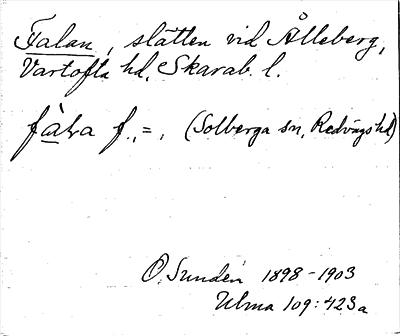 Falan, slätten vid Ålleberg,
Vartofta hd, Skarab. l.
fàla f., =, (Solberga sn, Redvägs hd)
O. Sundén 1898-1903
Ulma 109:423a